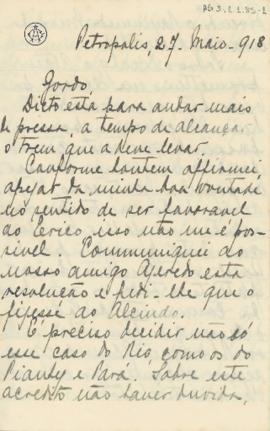 Petropolis, 27 Maio - 918
Gordo,
Dicto esta para andar mais
de pressa, a tempo de alcançar
o trem que a deve levar.
Conforme hontem affirmei,
apezar da minha boa vontade
no sentido de ser favoravel
ao Lerico, isso não me é pos-
sivel. Communiquei ao
nosso amigo Azeredo esta
resolução e pedi-lhe que o
fizesse ao Alcindo.
É preciso decidir não só
esse caso do Rio, como os do
Piauhy e Pará. Sobre este
acredito não haver duvida,